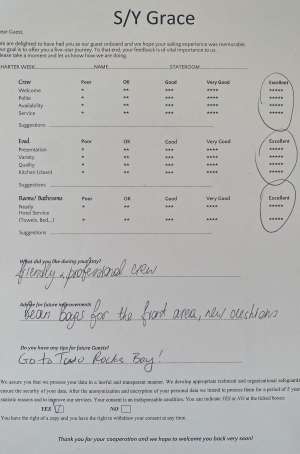 S/Y Grace
Dear Guest,
We are delighted to have had you as our guest onboard and we hope your sailing experience was memorable.
Our goal is to offer you a five-star journey. To that end, your feedback is of vital importance to us.
Please take a moment and let us know how we are doing.
CHARTER WEEK NAME STATEROOM
Crew Poor OK Good Very Good Excellent
Welcome * ** *** **** *****
Polite * ** *** **** *****
Availability * ** *** **** *****
Service * ** *** **** *****
Suggestions
Food Poor OK Good Very Good Excellent
Presentation * ** *** **** *****
Variety * ** *** **** *****
Quality * ** *** **** *****
Kitchen (clean) * ** *** **** *****
Suggestions
Rooms/ Bathrooms Poor OK Good Very Good Excellent
Ready * ** *** **** *****
Hotel Service
(Towels, Bed...) * ** *** **** *****
Suggestions
What did you like during your stay?
friendly + professional crew
Advise for future improvements
Bean bags for the front area, new cushions
Do you have any tips for future Guests?
Go to Two Rocks Bay!
We assure you that we process your data in a lawful and transparent manner. We develop appropriate technical and organisational safeguards
ensure the security of your data. After the anonymization and encryption of your personal data we intend to process them for a period of 2 years
statistic reasons and to improve our services. Your consent is an indispensable condition. You can indicate YES or NO at the ticked boxes:
YES NO
You have the right of a copy and you have the right to withdraw your consent at any time.
Thank you for your cooperation and we hope to welcome you back very soon!